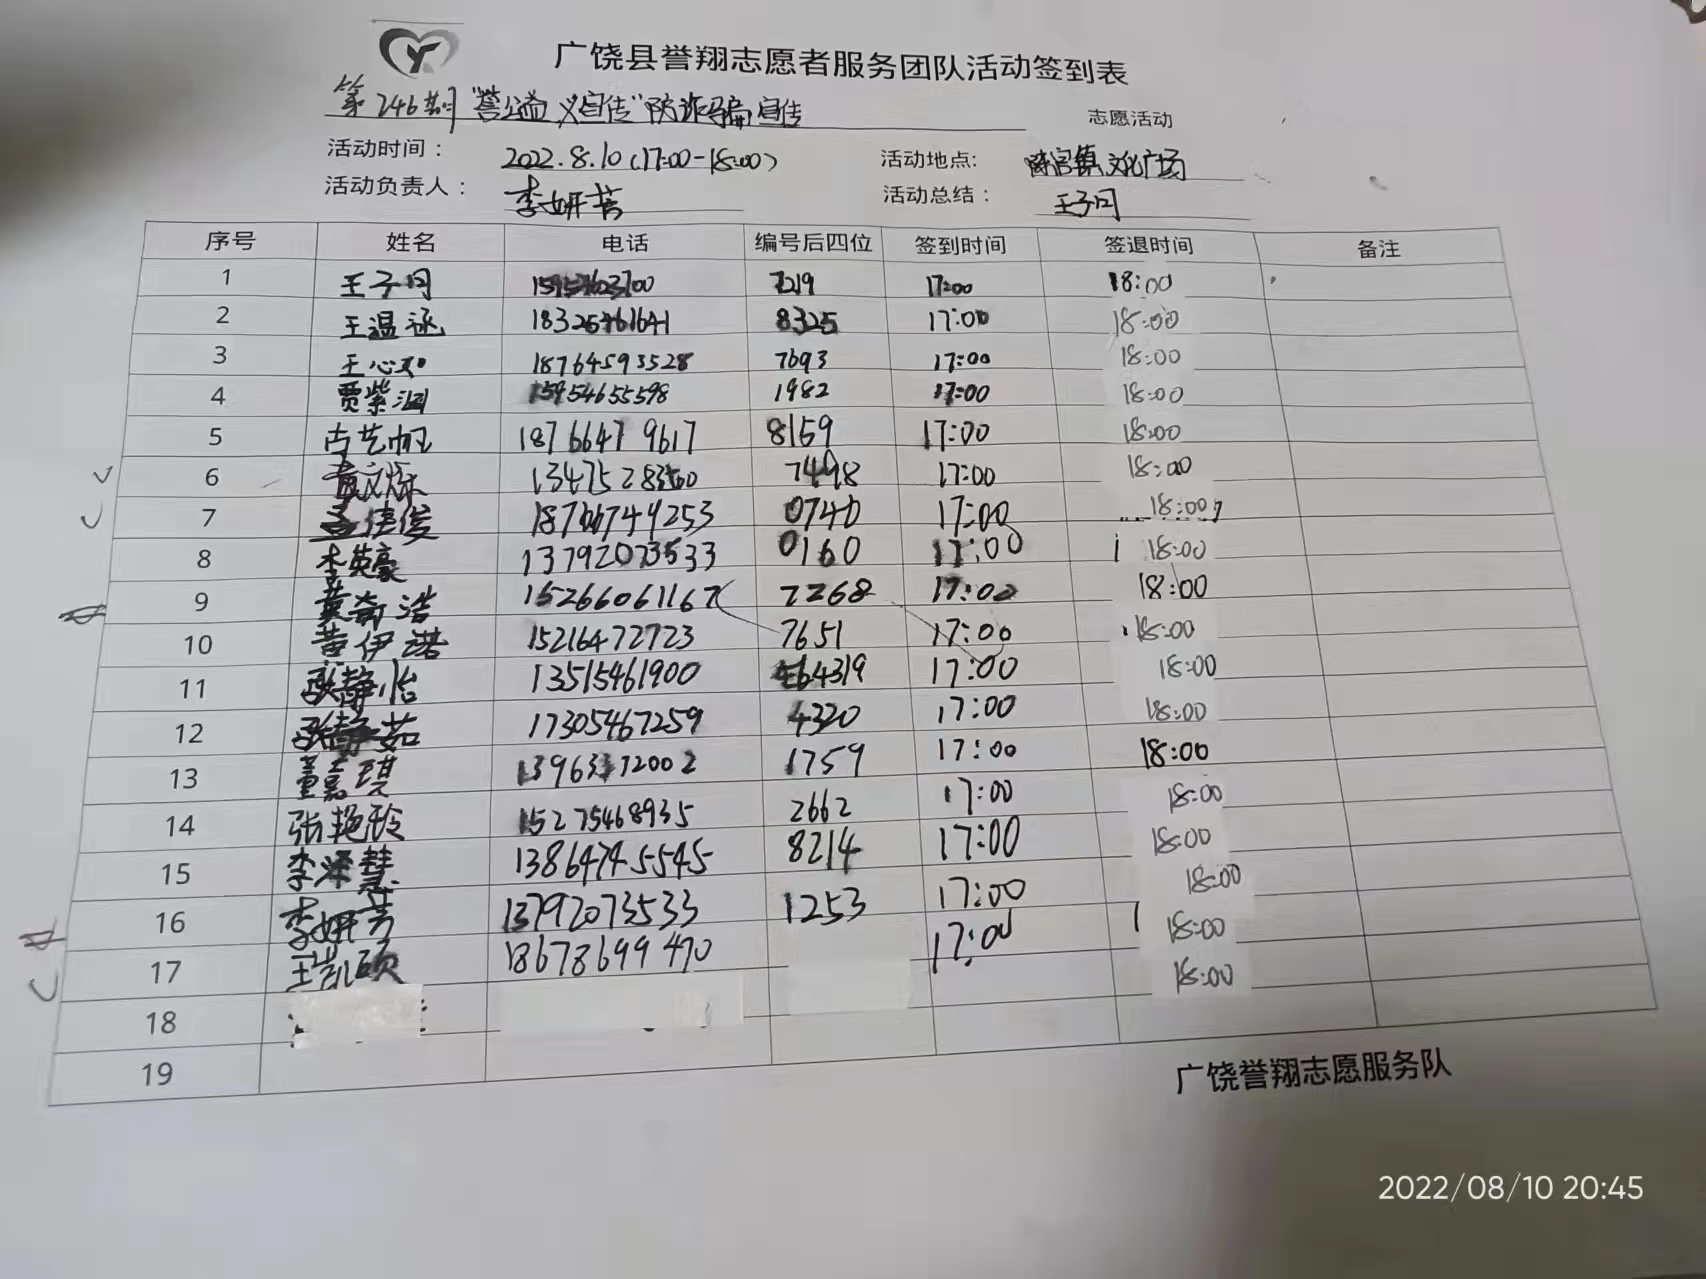 广饶县誉翔志愿者服务团队活动签到表
第246期“誉公益 义宣传”防诈骗宣传 志愿活动
活动时间： 2022.8.10（17:00-18:00） 活动地点: 陈官镇文化广场
活动负责人： 李妍芳 活动总结： 王子同
序号 姓名 电话 编号后四位 签到时间 签退时间 备注
1 王子同 7219 17:00 18:00
2 王温涵 18325461641 8325 17:00 18:00
3 王心如 18764593528 7693 17:00 18:00
4 贾紫涵 15954655598 1982 17:00 18:00
5 古艺帆 18766479617 8159 17:00 18:00
6 7498 17:00 18:00
7 0740 17:00 18:00
8 李英豪 13792073533 0160 17:00 18:00
9 黄奇浩 15266061167 7268 17:00 18:00
10 黄伊诺 15216472723 7651 17:00 18:00
11 张静怡 13515461900 4319 17:00 18:00
12 张静茹 17305467259 4320 17:00 18:00
13 董嘉琪 1759 17:00 18:00
14 张艳玲 15275468935 2662 17:00 18:00
15 李泽慧 13864745545 8214 17:00 18:00
16 李妍芳 13792073533 1253 17:00 18:00
17 王凯硕 18678699470 17:00 18:00
18
19
广饶誉翔志愿服务队
2022/08/10 20:45